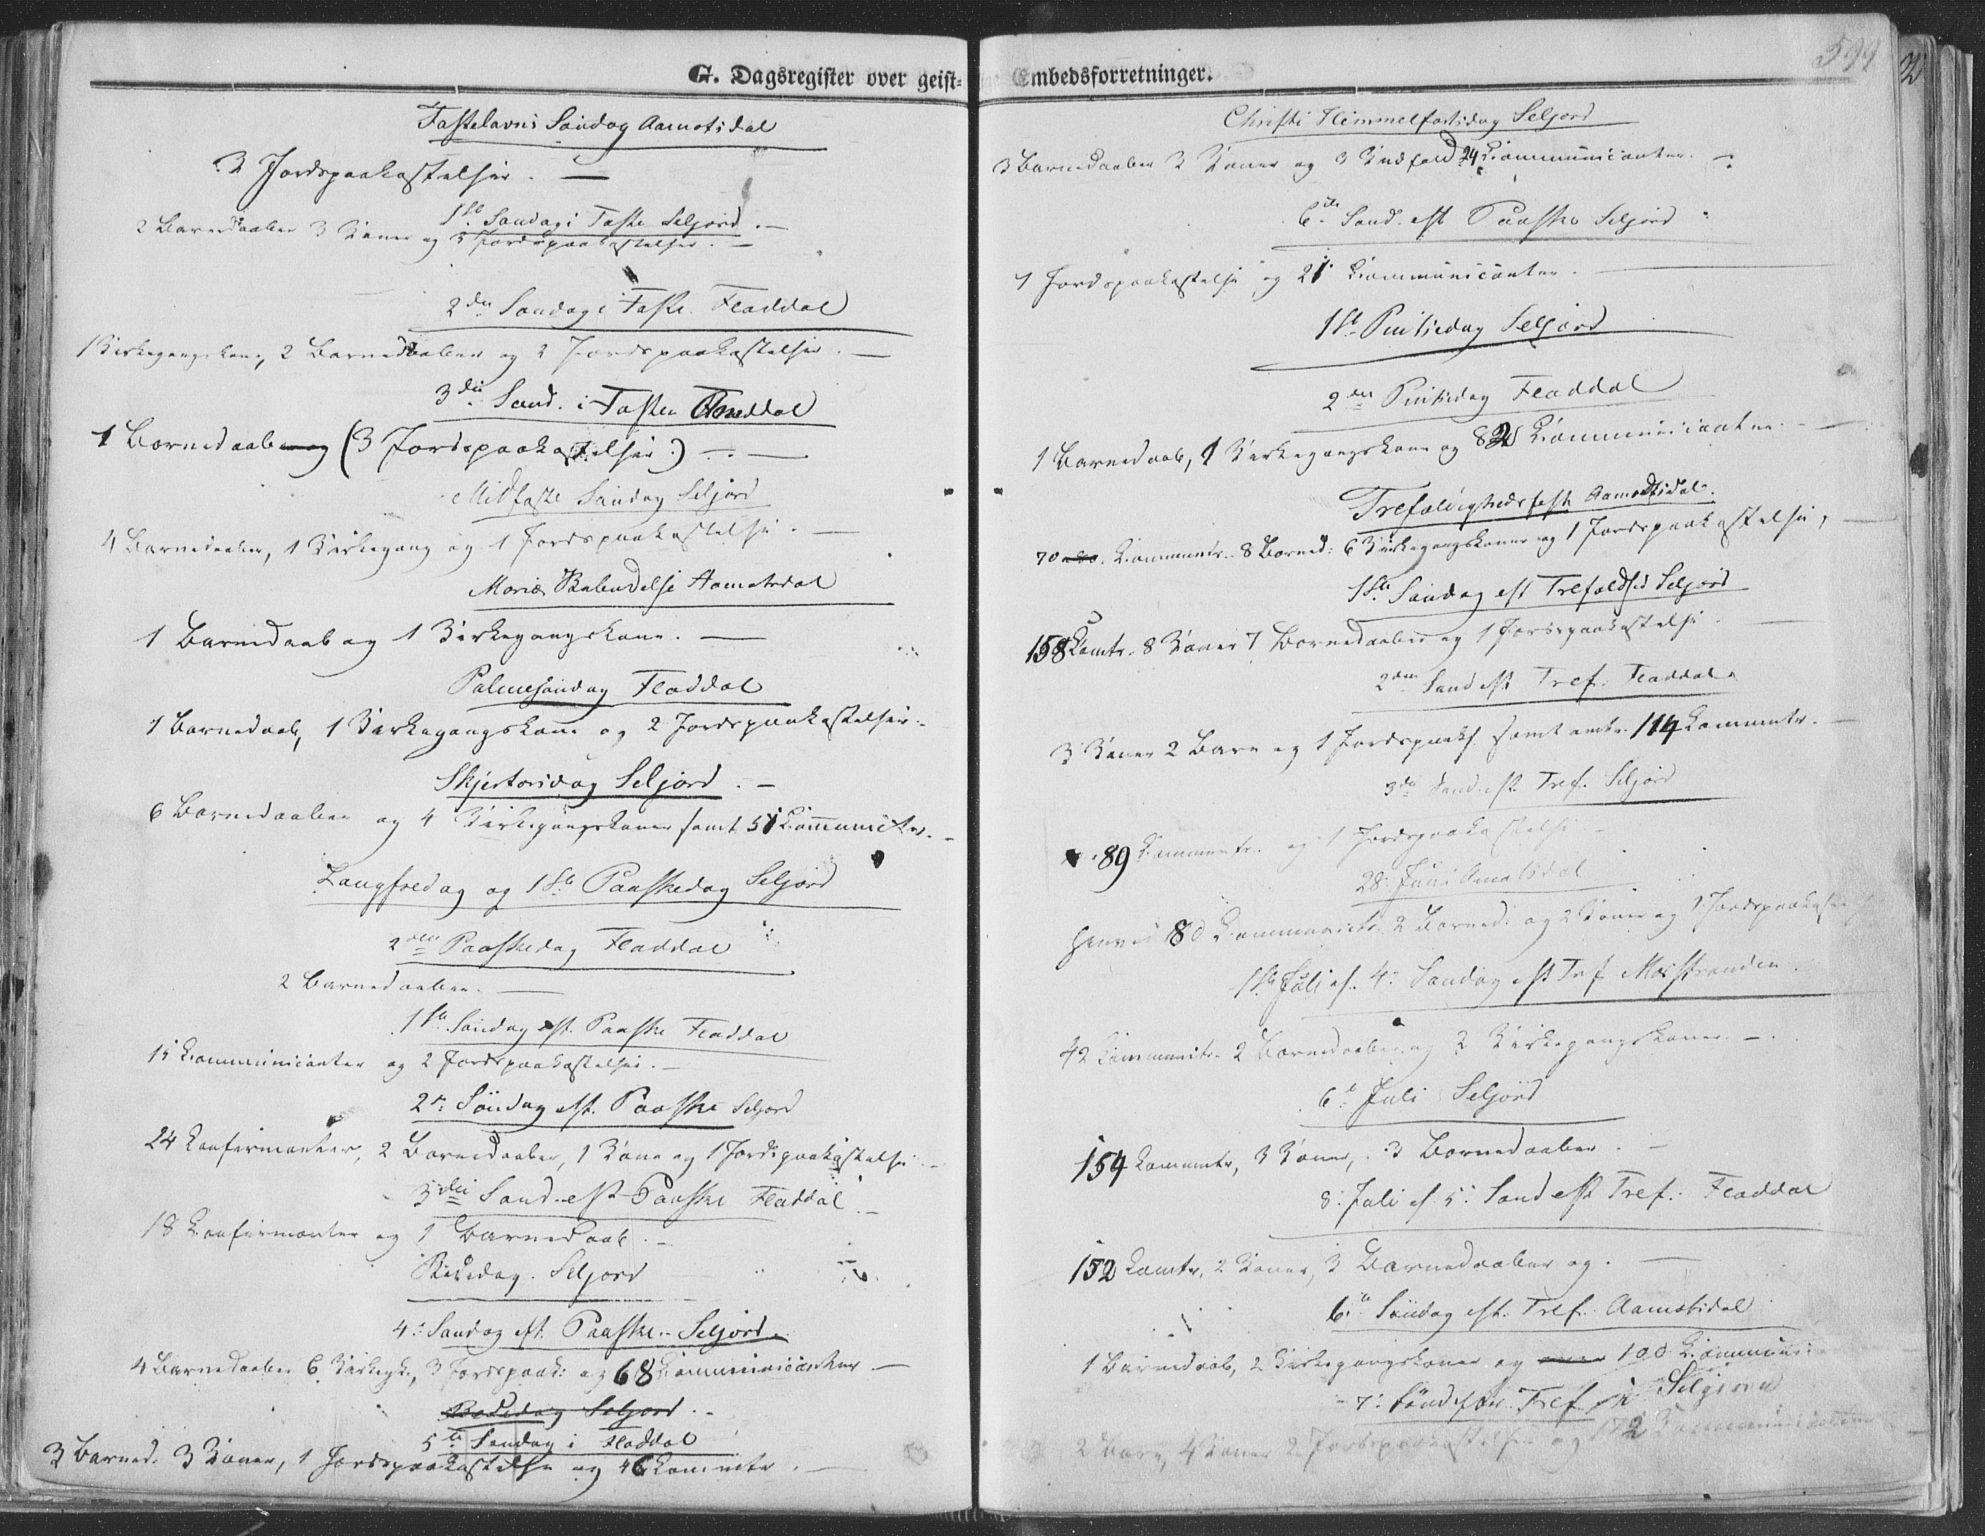 G. Dagsregister over geist-
Fastelavns Søndag Aamotsdal
3 Jordspaakastelser.
1ste Søndag i Faste Seljord.
2 Barnedaaber 3 Koner og 3 Jordspaakastelser.
2den Søndag i Faste. Fladdal
1 Kirkegangskone, 2 Barnedaaber og 2 Jordspaakastelser.
3die Sønd. i Fasten
1 Barnedaab og (3 Jordspaakastelser.)
Midfaste Søndag Seljord
4 Barnedaaber, 1 Kirkegang og 1 Jordspaakastelse.
Mariæ Bebudelse Aamotsdal
1 Barnedaab og 1 Kirkegangskone.
Palmesøndag Fladdal
1 Barnedaab, 1 Kirkegangskone og 2 Jordspaakastelser.
Skjertorsdag Seljord.
6 Barnedaaber og 4 Kirkegangskoner samt 51 Communictr.
Langfredag og 1ste Paaskedag Seljord
2den Paaskedag Fladdal
2 Barnedaaber.
1ste Søndag eft. Paaske Fladdal
15 Communicanter og 2 Jordspaakastelser.
2n Søndag eft. Paaske Seljord
24 Konfirmanter, 2 Barnedaaber, 1 Kone og 1 Jordspaakastelse
3die Sønd. eft Paaske Fladdal.
18 Konfirmanter og 1 Barnedaab.
Bededag. Seljord
4: Søndag eft. Paaske. Seljord.
4 Barnedaaber 6 Kirkegk., 3 Jordspaak: og 68 Communicanter
Bededag Seljord.
5te Søndag i Fladdal
3 Barned. 3 Koner, 1 Jordspaakastelse og 46 Kommntr.
Embedsforretninger.
599
Christi Himmelfartsdag Seljord
3 Barnedaaber 2 Koner og 3 24 Communicanter.
6te Sønd. eft Paaske Seljord
1 Jordspaakastelse og 21 Communicanter.
1ste Pintsedag Seljord
2den Pintsedag Fladdal
1 Barnedaab, 1 Kirkegangskone og 82 Communicanter.
Trefoldighedsfest Aamodtsdal.
70 Communtr. 8 Barned: 6 Kirkegangskoner og 1 Jordspaakastelse,
1ste Søndag eft Trefoldhed Seljord
158 Comtr. 8 Koner 7 Barnedaaber og 1 Jordspaakastelse.
2den Sønd eft Tref. Fladdal.
3 Koner 2 Barn og 1 Jordspaak. samt 114 Commntr.
3die Sønd. eft Tref. Seljord
89 Communtr. og 1 Jordspaakastelse
28: Juni Amotsdal
henved 80 Communictr 2 Barned: og 2 Koner og 1 Jordspaakastelse
1ste Juli ef. 4: Søndag eft Tref Møsstranden
42 Communictr. 2 Barnedaaber og 2 Kirkegangskoner.
6te Juli Seljord
154 Commntr, 3 Koner, 3 Barnedaaber.
8: Juli ef 5: Sønd eft Tref. Fladdal
152 Comtr, 2 Koner, 3 Barnedaaber og.
6te Søndag eft. Tref. Aamotsdal
1 Barnedaab, 2 Kirkegangskoner og 100 Communic
7: Sønd efter Tref i Seljord
2 Barn, 4 Koner 2 Jordspaakastelser og 172 Communicanter